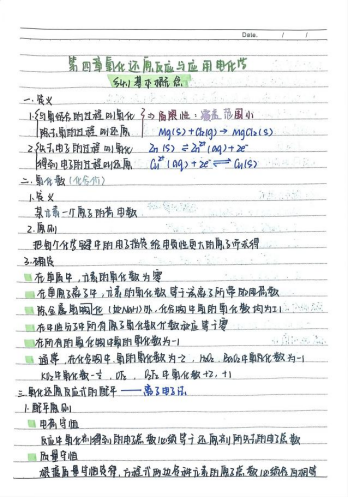 Date. / /
第四章氧化还原反应与应用电化学
§4.1 基本概念
一.定义
1.与氧结合的过程叫氧化 ⇒ 局限性：范围小
除去氧的过程叫还原 Mg(s)+Cl₂(g) → MgCl₂(s)
2.失去电子的过程叫氧化 Zn(s) ⇌ Zn²⁺(aq)+2e⁻
得到电子的过程叫还原 Cu²⁺(aq)+2e⁻ ⇌ Cu(s)
二.氧化数(化合价)
1.定义
某元素一个原子的荷电数
2.原则
把每个化学键中的电子指定给电负性更大的原子而求得
3.确定
在单质中,元素的氧化数为零
在单原子离子中,元素的氧化数等于离子所带的电荷数
除金属氢化物(如NaH)外,化合物中氢的氧化数均为+1
在中性分子中所有原子氧化数代数和应等于零
在所有的氟化物中氟的氧化数为-1
通常,在化合物中氧的氧化数为-2, H₂O₂ BaO₂中氧化数为-1
KO₂中氧化数-½, OF₂ O₂F₂中氧化数+2,+1
三.氧化还原反应式的配平——离子电子法
1.配平原则
电荷守恒
反应中氧化剂得到的电子总数必须等于还原剂所失的电子总数
质量守恒
根据质量守恒定律,方程式的边各种元素的原子总数必须各自相等